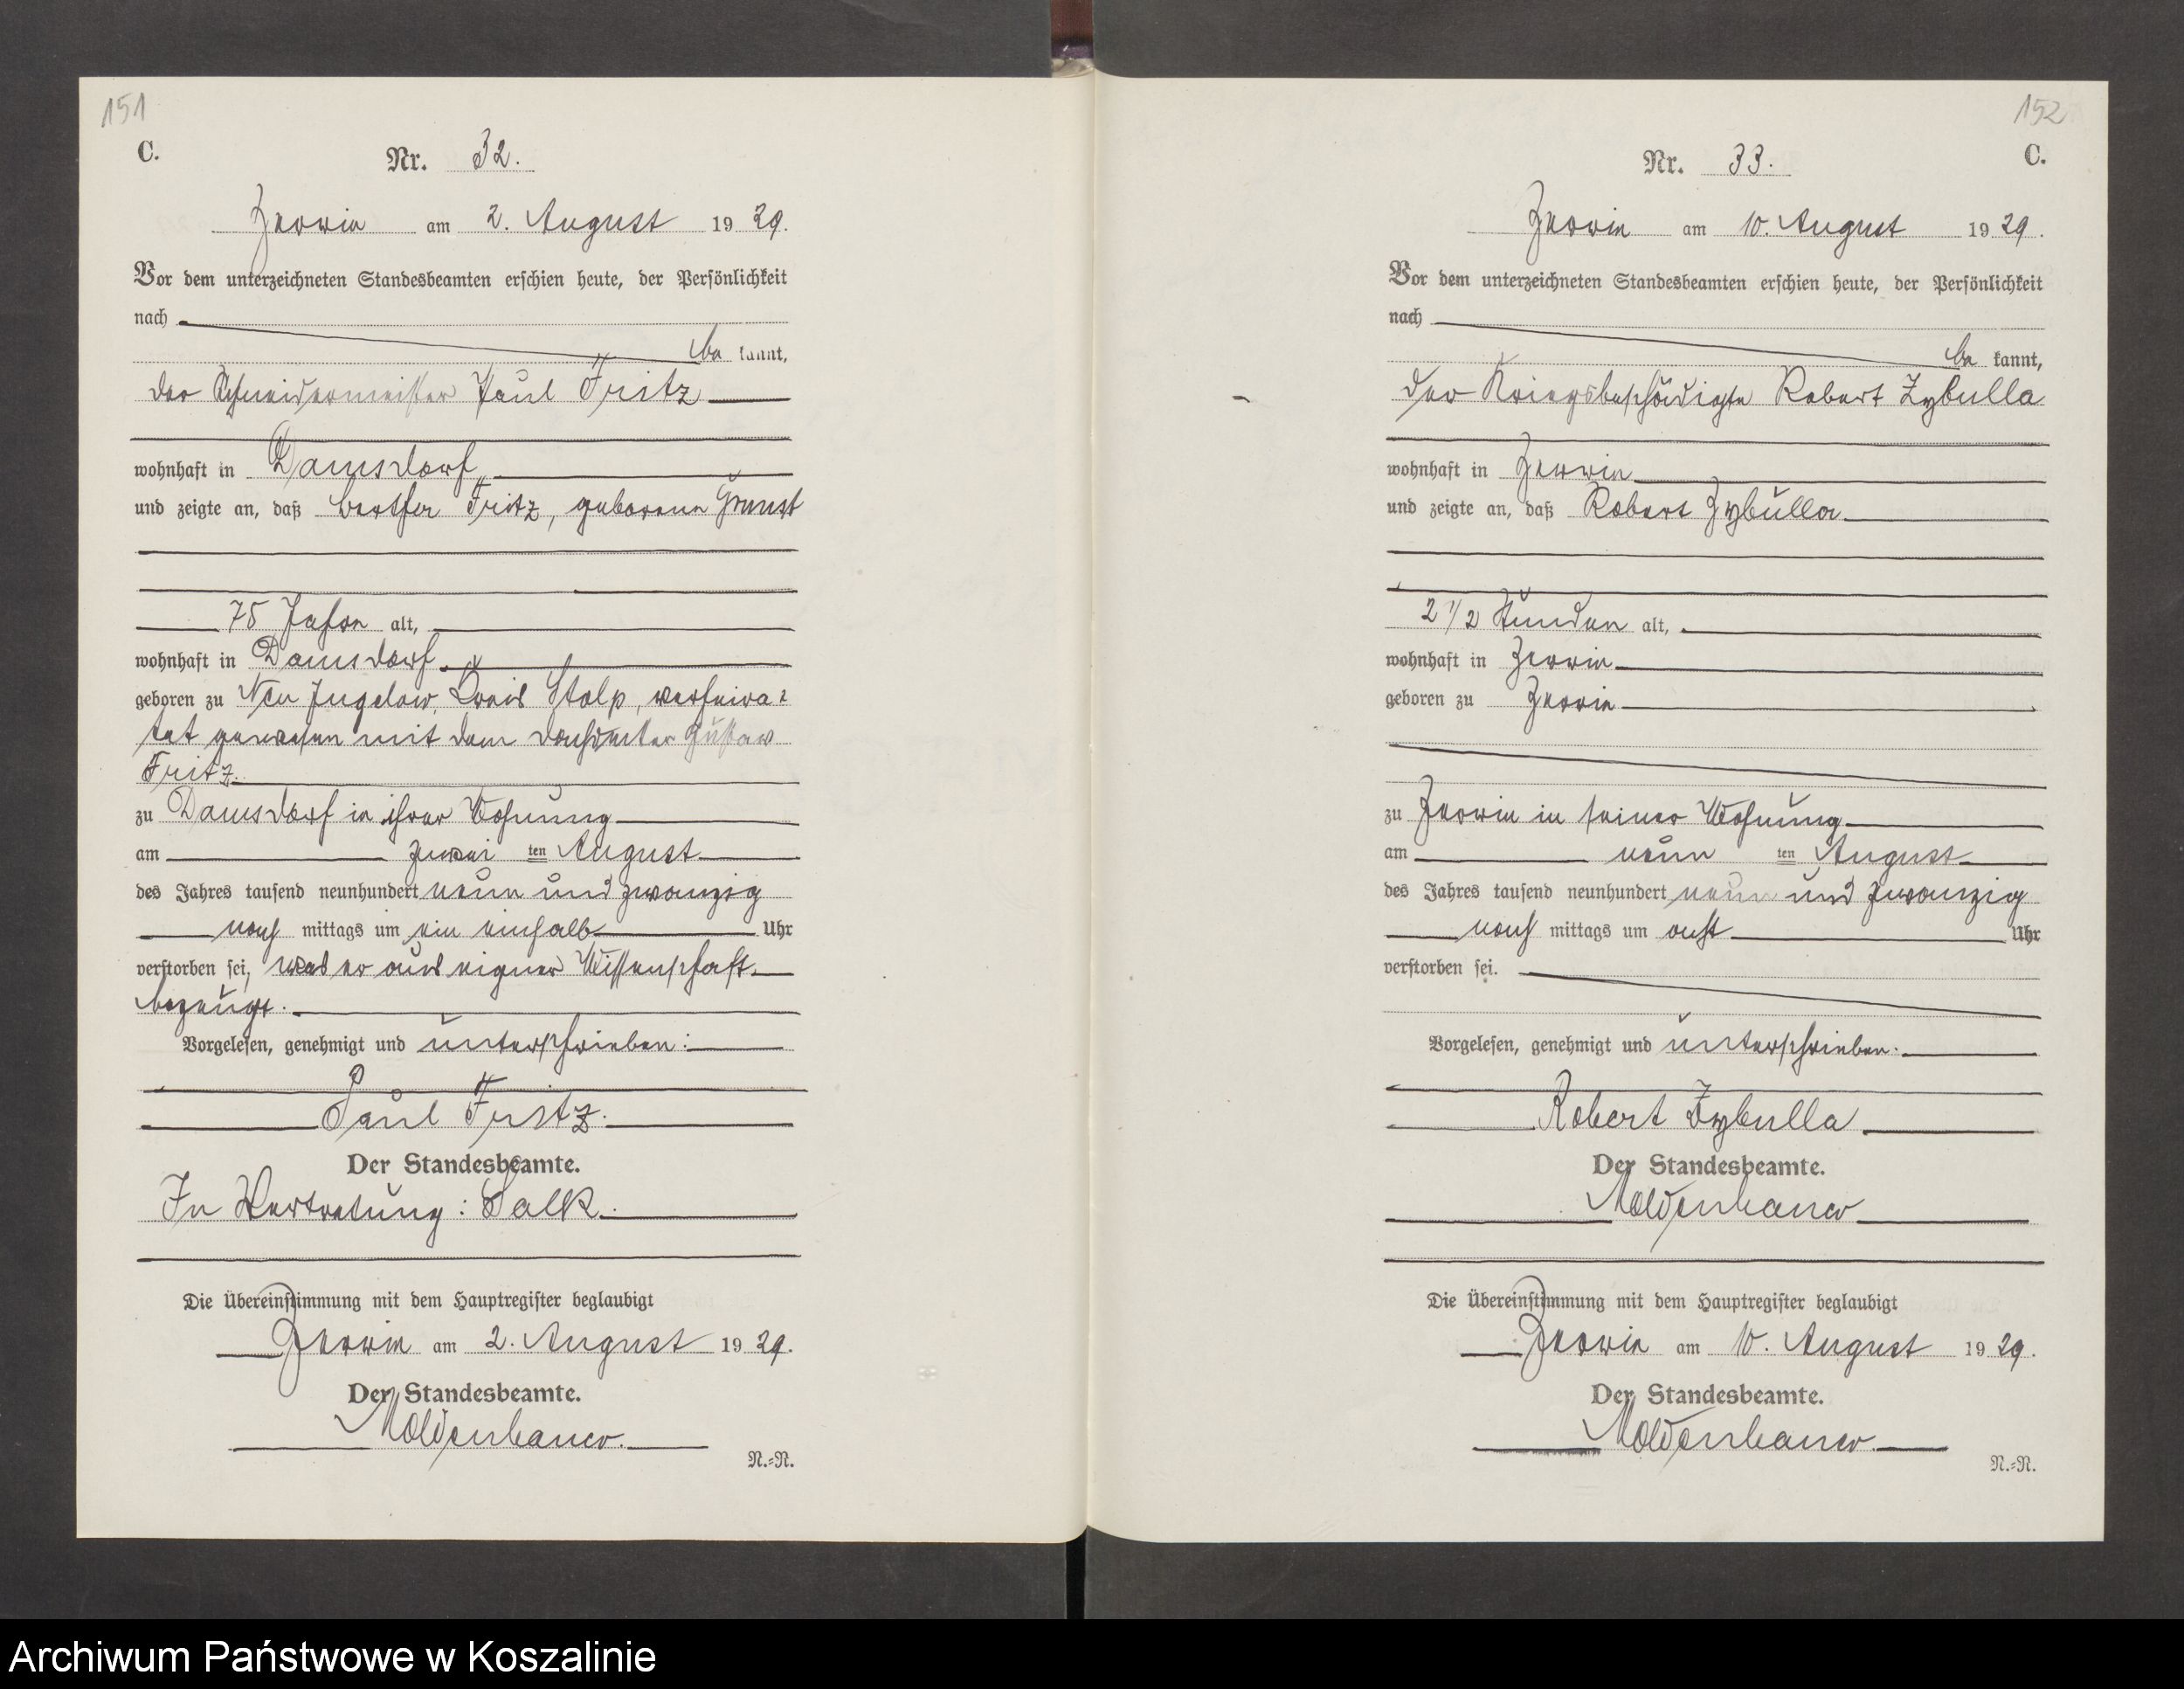 151
C.
Nr. 32.
Zerrin am 2. August 1929.
Vor dem unterzeichneten Standesbeamten erschien heute, der Persönlichkeit
nach
be kannt,
der Schneidermeister Paul Fritz
wohnhaft in Damsdorf,
und zeigte an, daß Berther Fritz, geborene Grunst
75 Jahre alt,
wohnhaft in Damsdorf.
geboren zu Neu Jugelow, Kreis Stolp, verheira-
tet gewesen mit dem Gustav
Fritz.
zu Damsdorf in ihrer Wohnung
am zwei ten August
des Jahres tausend neunhundert neun und zwanzig
nach mittags um ein einhalb Uhr
verstorben sei, was er aus eigner Wissenschaft
bezeugt.
Vorgelesen, genehmigt und unterschrieben:
Paul Fritz.
Der Standesbeamte.
In Vertretung: Salk.
Die Übereinstimmung mit dem Hauptregister beglaubigt
Zerrin am 2. August 1929.
Der Standesbeamte.
Moldenhauer.
N.-N.
152
C.
Nr. 33.
Zerrin am 10. August 1929.
Vor dem unterzeichneten Standesbeamten erschien heute, der Persönlichkeit
nach
be kannt,
der Kriegsbeschädigte Robert Zybulla
wohnhaft in Zerrin
und zeigte an, daß Robert Zybulla
2 1/2 Stunden alt,
wohnhaft in Zerrin
geboren zu Zerrin
zu Zerrin in seiner Wohnung
am neun ten August
des Jahres tausend neunhundert neun und zwanzig
nach mittags um acht Uhr
verstorben sei.
Vorgelesen, genehmigt und unterschrieben.
Robert Zybulla
Der Standesbeamte.
Moldenhauer
Die Übereinstimmung mit dem Hauptregister beglaubigt
Zerrin am 10. August 1929.
Der Standesbeamte.
Moldenhauer.
N.-N.
Archiwum Państwowe w Koszalinie